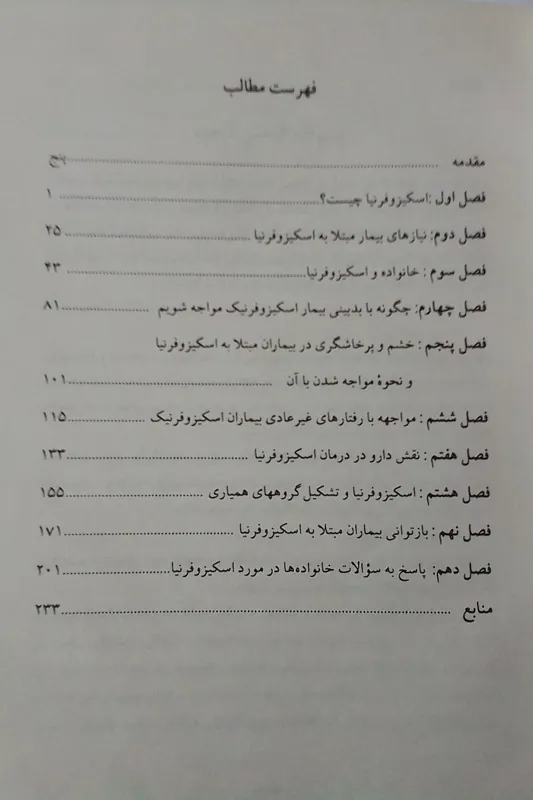 فهرست مطالب
مقدمه ........ پنج
فصل اول :اسکیزوفرنیا چیست؟........ ۱
فصل دوم: نیازهای بیمار مبتلا به اسکیزوفرنیا ........ ۲۵
فصل سوم : خانواده و اسکیزوفرنیا........ ۴۳
فصل چهارم: چگونه با بدبینی بیمار اسکیزوفرنیک مواجه شویم ........ ۸۱
فصل پنجم : خشم و پرخاشگری در بیماران مبتلا به اسکیزوفرنیا
و نحوۀ مواجه شدن با آن ........ ۱۰۱
فصل ششم : مواجهه با رفتارهای غیرعادی بیماران اسکیزوفرنیک ........ ۱۱۵
فصل هفتم : نقش دارو در درمان اسکیزوفرنیا ........ ۱۳۳
فصل هشتم : اسکیزوفرنیا و تشکیل گروههای همیاری ........ ۱۵۵
فصل نهم : بازتوانی بیماران مبتلا به اسکیزوفرنیا ........ ۱۷۱
فصل دهم: پاسخ به سؤالات خانواده‌ها در مورد اسکیزوفرنیا........ ۲۰۱
منابع ........ ۲۳۳